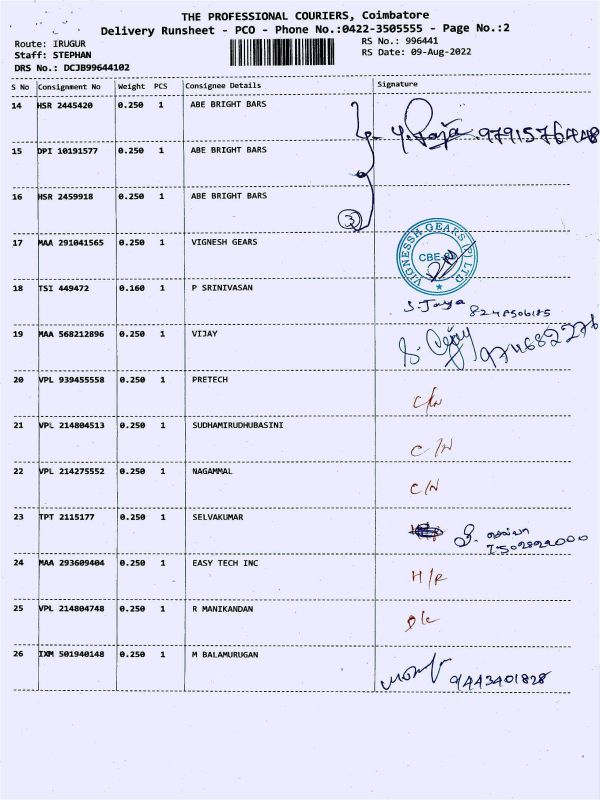 THE PROFESSIONAL COURIERS, Coimbatore
Delivery Runsheet - PCO - Phone No.:0422-3505555 - Page No.:2
Route: IRUGUR
RS No.: 996441
Staff: STEPHAN
RS Date: 09-Aug-2022
DRS No.: DCJB99644102
S No Consignment No Weight PCS Consignee Details Signature
14 HSR 2445420 0.250 1 ABE BRIGHT BARS
15 DPI 10191577 0.250 1 ABE BRIGHT BARS
16 HSR 2459918 0.250 1 ABE BRIGHT BARS
3
17 MAA 291041565 0.250 1 VIGNESH GEARS
VIGNESSH GEARS (P) LTD
CBE
18 TSI 449472 0.160 1 P SRINIVASAN
S. Jaya
19 MAA 568212896 0.250 1 VIJAY
20 VPL 939455558 0.250 1 PRETECH C/N
21 VPL 214804513 0.250 1 SUDHAMIRUDHUBASINI C/N
22 VPL 214275552 0.250 1 NAGAMMAL C/N
23 TPT 2115177 0.250 1 SELVAKUMAR
24 MAA 293609404 0.250 1 EASY TECH INC H/R
25 VPL 214804748 0.250 1 R MANIKANDAN
26 IXM 501940148 0.250 1 M BALAMURUGAN 9443401828